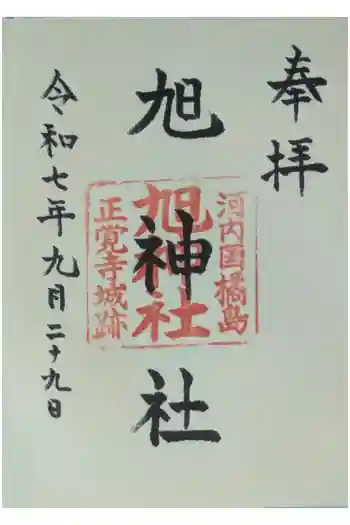 奉拝
旭神社
河内国橘島
旭神社
正覚寺城跡
令和七年九月二十九日